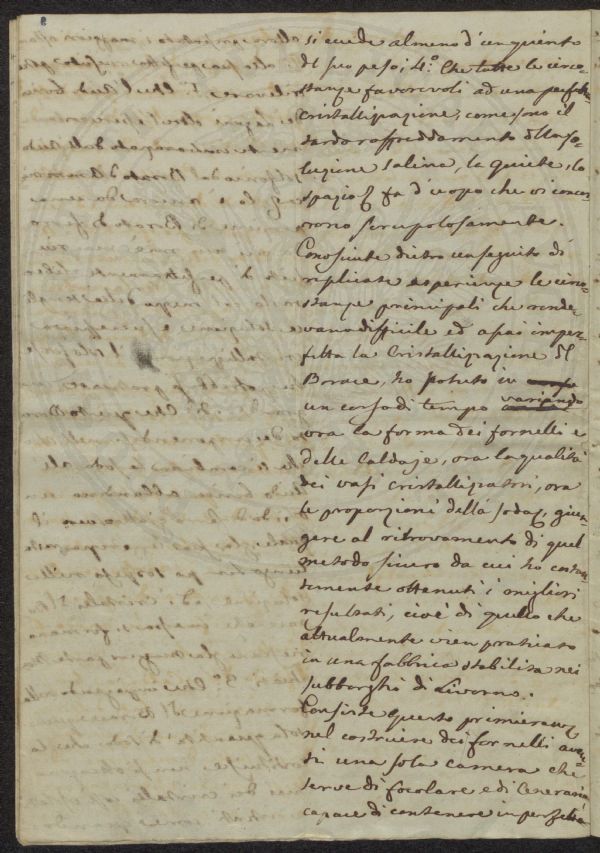 8
si ecceda almeno d'un quinto
del suo peso; 4.° Che tutte le circo-
stanze favorevoli ad una perfetta
Cristallizzazione, come sono il
tardo raffreddamento della so-
luzione salina, la quiete, lo
spazio fa d'uopo che vi concor-
rono scrupolosamente.
Conosciute dietro un seguito di
replicate esperienze le circo-
stanze principali che rende-
vano difficile ed assai imper-
fetta la Cristallizzazione del
Borace, ho potuto in
un corso di tempo variando
ora la forma dei fornelli e
delle Caldaje, ora la qualità
dei vasi Cristallizzatori, ora
le proporzioni della soda, giun-
gere al ritrovamento di quel
metodo sicuro da cui ho costan-
temente ottenuti i migliori
resultati, cioè di quello che
attualmente vien praticato
in una fabbrica stabilita nei
subborghi di Livorno.
Consiste questo primieram.
nel costruire dei fornelli aven-
ti una sola camera che
serve di focolare e di Cenerario
capace di contenere